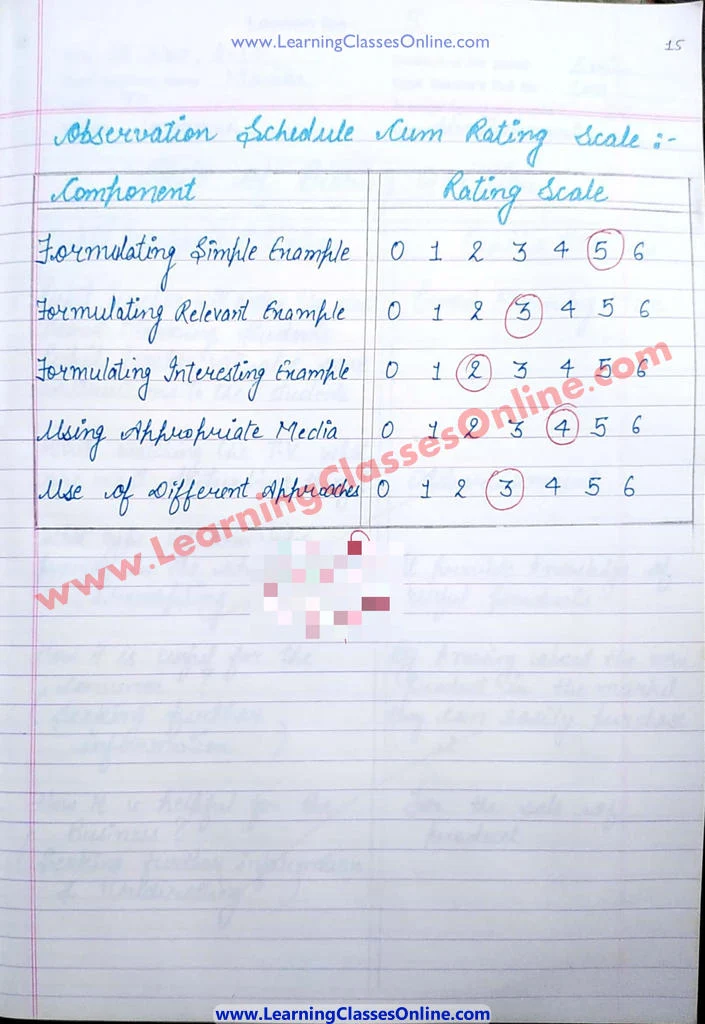 www.LearningClassesOnline.com
15
Observation Schedule Cum Rating Scale :-
Component Rating Scale
Formulating Simple Example 0 1 2 3 4 5 6
Formulating Relevant Example 0 1 2 3 4 5 6
Formulating Interesting Example 0 1 2 3 4 5 6
Using Appropriate Media 0 1 2 3 4 5 6
Use of Different Approaches 0 1 2 3 4 5 6
www.LearningClassesOnline.com
www.LearningClassesOnline.com